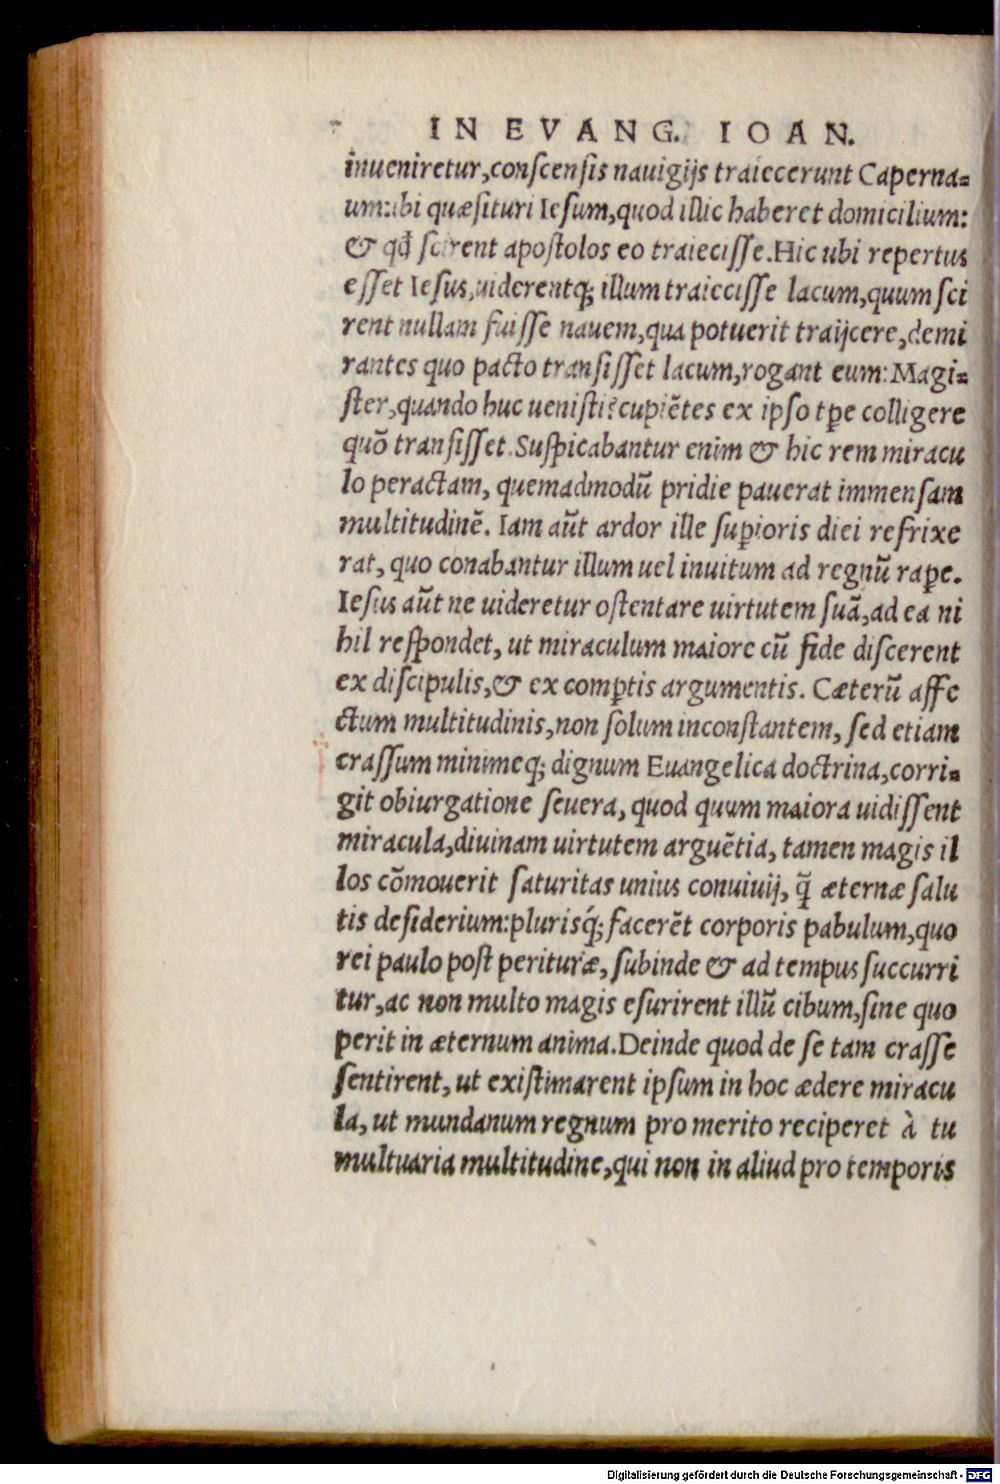 IN EVANG. IOAN.
inueniretur,conscensis nauigijs traiecerunt Caperna=
um:ibi quæsituri Iesum,quod illic haberet domicilium:
& qđ scirent apostolos eo traiecisse.Hic ubi repertus
esset Iesus,uiderentq; illum traiecisse lacum,quum sci
rent nullam fuisse nauem,qua potuerit traijcere,demi
rantes quo pacto transisset lacum,rogant eum:Magi=
ster,quando huc uenisti?cupiētes ex ipso tp̄e colligere
quō transisset.Suspicabantur enim & hic rem miracu
lo peractam, quemadmodū pridie pauerat immensam
multitudinē. Iam aūt ardor ille sup̱ioris diei refrixe
rat, quo conabantur illum uel inuitum ad regnū rap̱e.
Iesus aūt ne uideretur ostentare uirtutem suā,ad ea ni
hil respondet, ut miraculum maiore cū fide discerent
ex discipulis,& ex comp̱tis argumentis. Cæterū affe
ctum multitudinis,non solum inconstantem, sed etiam
crassum minimeq; dignum Euangelica doctrina,corri=
git obiurgatione seuera, quod quum maiora uidissent
miracula,diuinam uirtutem arguētia, tamen magis il
los cōmouerit saturitas unius conuiuij, q̄ æternæ salu
tis desiderium:plurisq́; facerēt corporis pabulum,quo
rei paulo post perituræ, subinde & ad tempus succurri
tur,ac non multo magis esurirent illū cibum,sine quo
perit in æternum anima.Deinde quod de se tam crasse
sentirent, ut existimarent ipsum in hoc ædere miracu
la, ut mundanum regnum pro merito reciperet à tu
multuaria multitudine,qui non in aliud pro temporis
Digitalisierung gefördert durch die Deutsche Forschungsgemeinschaft - DFG